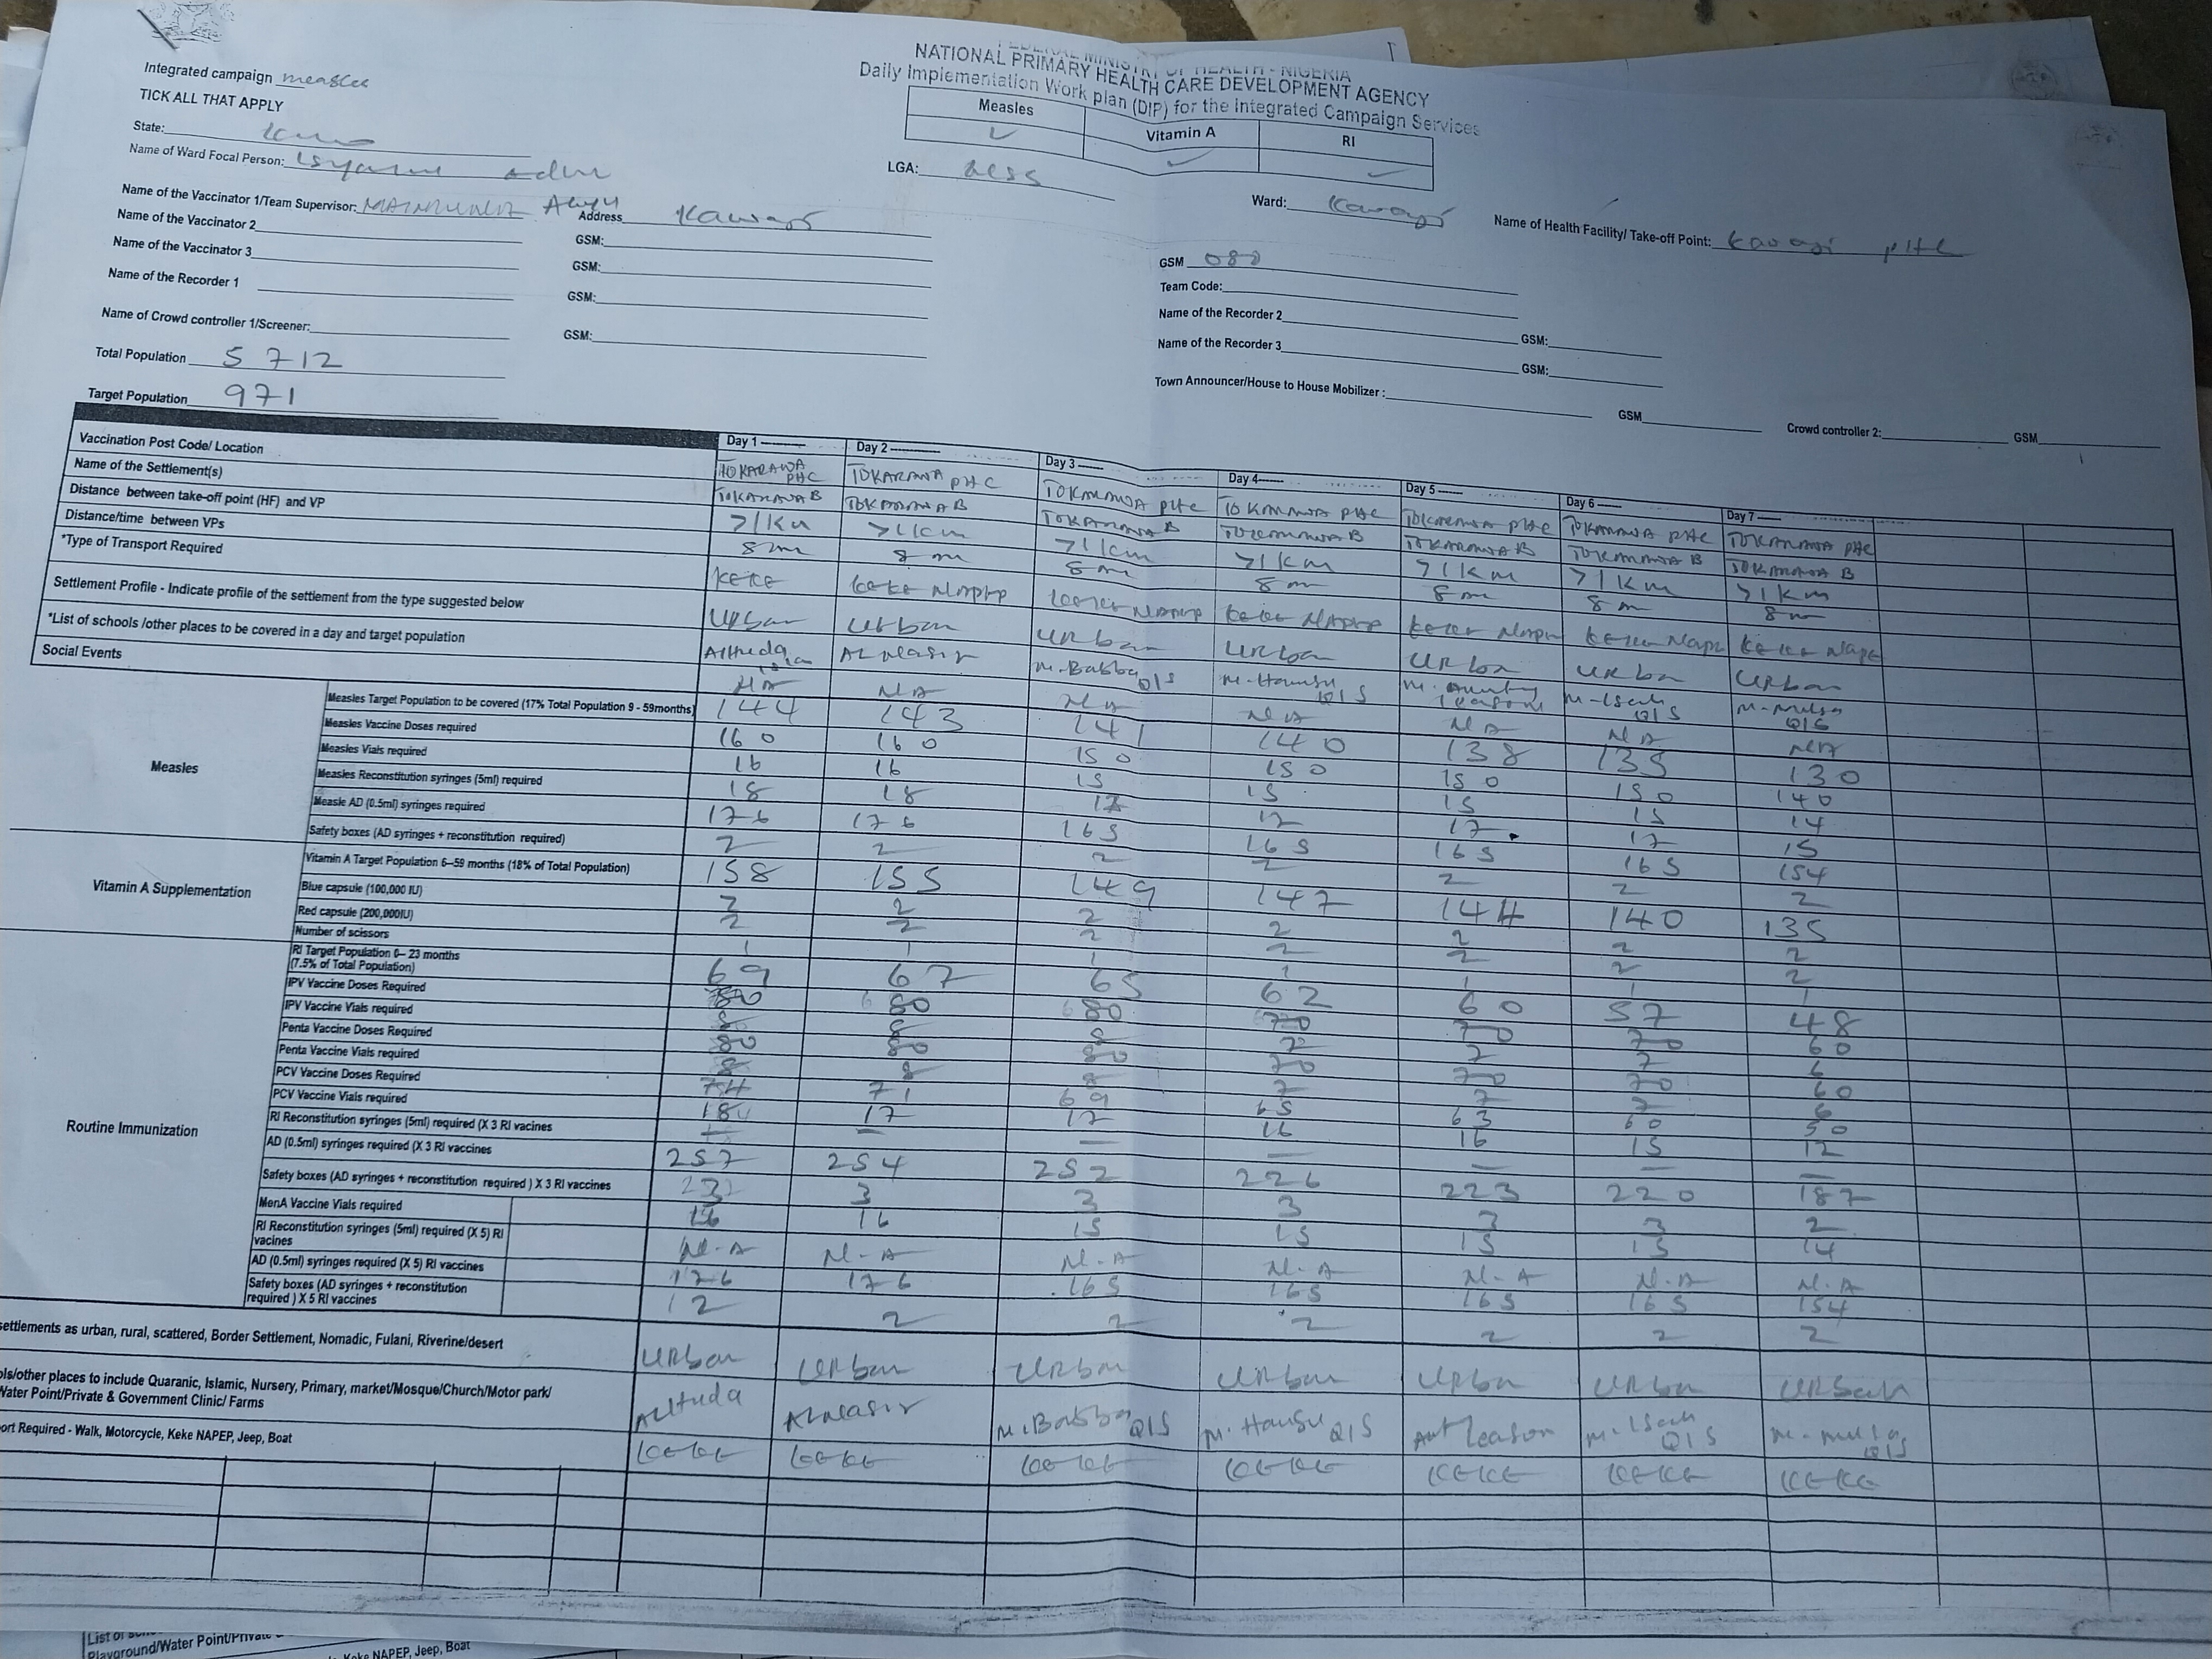 FEDERAL MINISTRY OF HEALTH - NIGERIA
NATIONAL PRIMARY HEALTH CARE DEVELOPMENT AGENCY
Daily Implementation Work plan (DIP) for the Integrated Campaign Services
Integrated campaign
TICK ALL THAT APPLY
Measles Vitamin A RI
✓ ✓ ✓
State:
LGA:
Ward:
Name of Health Facility/ Take-off Point: PHC
Name of Ward Focal Person:
Name of the Vaccinator 1/Team Supervisor: Address GSM 080
Name of the Vaccinator 2 GSM: Team Code:
Name of the Vaccinator 3 GSM: Name of the Recorder 2 GSM:
Name of the Recorder 1 GSM: Name of the Recorder 3 GSM:
Name of Crowd controller 1/Screener: GSM: Town Announcer/House to House Mobilizer : GSM Crowd controller 2: GSM
Total Population 5712
Target Population 971
Day 1 Day 2 Day 3 Day 4 Day 5 Day 6 Day 7
Vaccination Post Code/ Location TOKARAWA PHC TOKARAWA PHC TOKARAWA PHC TOKARAWA PHC TOKARAWA PHC TOKARAWA PHC TOKARAWA PHC
Name of the Settlement(s) TOKARAWA B TOKARAWA B TOKARAWA B TOKARAWA B TOKARAWA B TOKARAWA B TOKARAWA B
Distance between take-off point (HF) and VP >1Km >1Km >1Km >1Km >1Km >1Km >1Km
Distance/time between VPs 8m 8m 8m 8m 8m 8m 8m
*Type of Transport Required KEKE KEKE KEKE KEKE KEKE KEKE KEKE
Settlement Profile - Indicate profile of the settlement from the type suggested below Urban Urban Urban Urban Urban Urban Urban
*List of schools /other places to be covered in a day and target population Alhuda M. Babba QIS M. Hausu QIS M. QIS M. QIS
Social Events NA NA NA NA NA NA NA
Measles
Measles Target Population to be covered (17% Total Population 9 - 59months) 144 143 141 140 138 135 130
Measles Vaccine Doses required 160 160 150 150 150 150 140
Measles Vials required 16 16 15 15 15 15 14
Measles Reconstitution syringes (5ml) required 18 18 17 17 17 15
Measle AD (0.5ml) syringes required 176 176 165 165 165 165 154
Safety boxes (AD syringes + reconstitution required) 2 2 2 2 2 2 2
Vitamin A Supplementation
Vitamin A Target Population 6–59 months (18% of Total Population) 158 155 149 147 144 140 135
Blue capsule (100,000 IU) 2 2 2 2 2 2 2
Red capsule (200,000IU) 2 2 2 2 2 2 2
Number of scissors 1 1 1 1 1 1 1
Routine Immunization
RI Target Population 0– 23 months
(7.5% of Total Population) 69 67 65 62 60 57 48
IPV Vaccine Doses Required 80 80 80 70 70 70 60
IPV Vaccine Vials required 8 8 8 7 7 7 6
Penta Vaccine Doses Required 80 80 80 70 70 70 60
Penta Vaccine Vials required 8 8 8 7 7 7 6
PCV Vaccine Doses Required 74 71 69 65 63 60 50
PCV Vaccine Vials required 18 17 17 16 16 15 12
RI Reconstitution syringes (5ml) required (X 3 RI vacines — — — — — — —
AD (0.5ml) syringes required (X 3 RI vaccines 257 254 252 226 223 220 187
Safety boxes (AD syringes + reconstitution required ) X 3 RI vaccines 3 3 3 3 3 2
MenA Vaccine Vials required 16 16 15 15 15 15 14
RI Reconstitution syringes (5ml) required (X 5) RI
vacines N.A N.A N.A N.A N.A N.A N.A
AD (0.5ml) syringes required (X 5) RI vaccines 176 176 165 165 165 165 154
Safety boxes (AD syringes + reconstitution
required ) X 5 RI vaccines 2 2 2 2 2 2
settlements as urban, rural, scattered, Border Settlement, Nomadic, Fulani, Riverine/desert Urban Urban Urban Urban Urban Urban Urban
ols/other places to include Quaranic, Islamic, Nursery, Primary, market/Mosque/Church/Motor park/
Water Point/Private & Government Clinic/ Farms Alhuda M. Babba QIS M. Hausu QIS M. QIS M. QIS
ort Required - Walk, Motorcycle, Keke NAPEP, Jeep, Boat KEKE KEKE KEKE KEKE KEKE KEKE KEKE
Playground/Water Point/Private
Keke NAPEP, Jeep, Boat